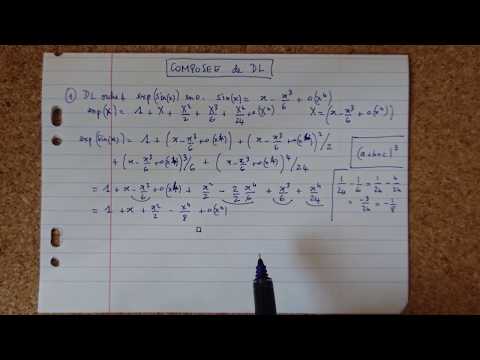 COMPOSEE de DL
① DL ordre 4 exp(sin(x)) en 0. sin(x) = x - x³/6 + o(x⁴)
exp(X) = 1 + X + X²/2 + X³/6 + X⁴/24 + o(X⁴) X = (x - x³/6 + o(x⁴))
exp(sin(x)) = 1 + (x - x³/6 + o(x⁴)) + (x - x³/6 + o(x⁴))²/2
+ (x - x³/6 + o(x⁴))³/6 + (x - x³/6 + o(x⁴))⁴/24
(a+b+c)³
= 1 + x - x³/6 + o(x⁴) + x²/2 - 2/2 x⁴/6 + x³/6 + x⁴/24
1/24 - 1/6 = 1/24 - 4/24
= 1 + x + x²/2 - x⁴/8 + o(x⁴)
= -3/24 = -1/8